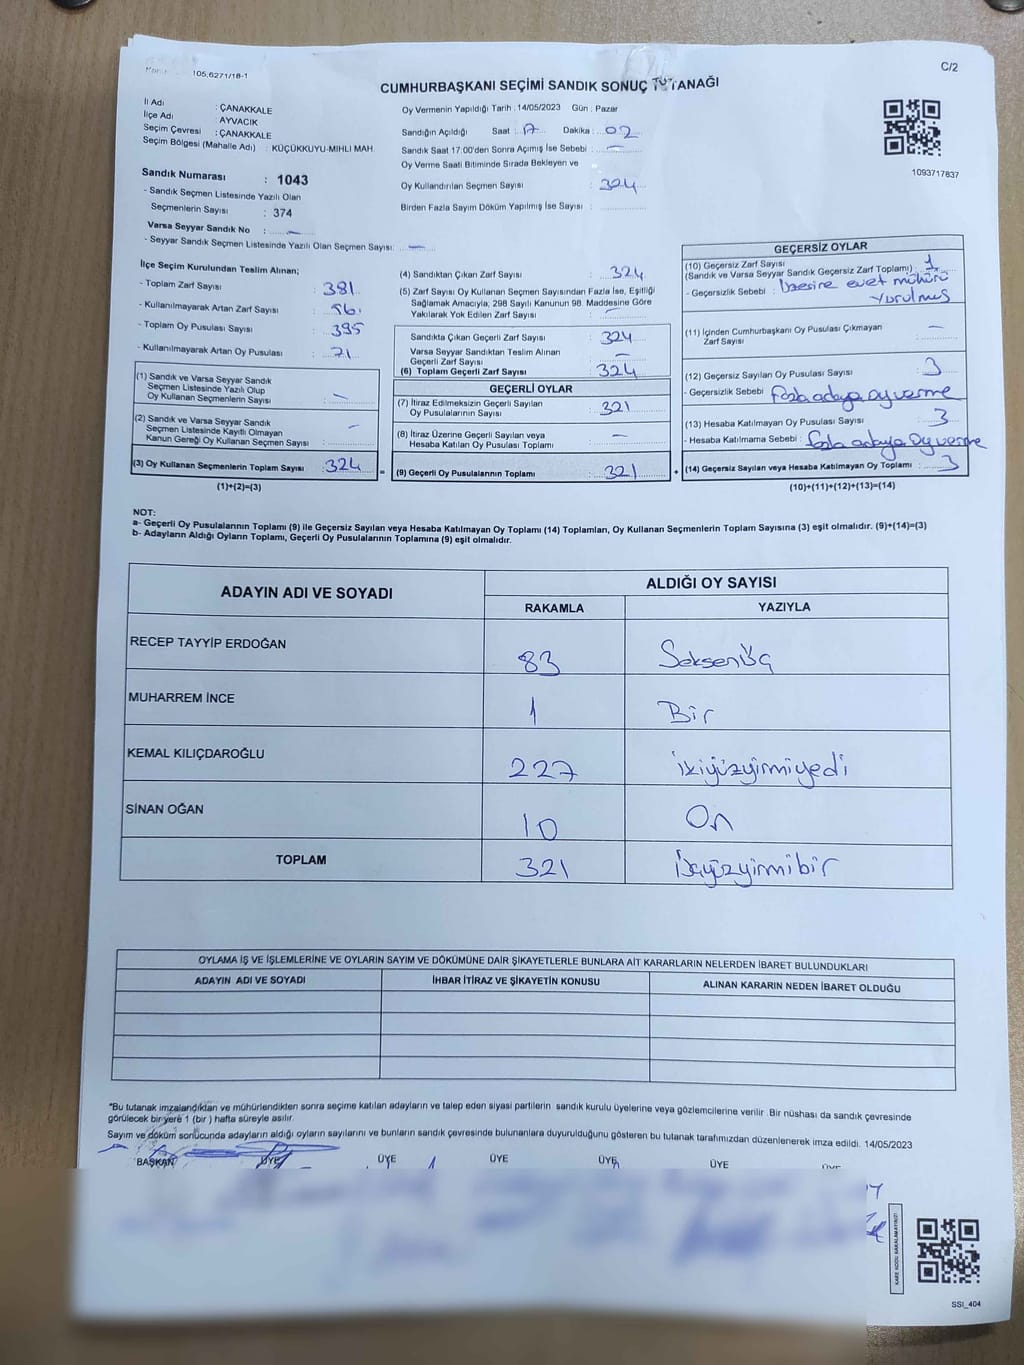 105.6271/18-1
C/2
CUMHURBAŞKANI SEÇİMİ SANDIK SONUÇ TUTANAĞI
İl Adı : ÇANAKKALE
İlçe Adı : AYVACIK
Seçim Çevresi : ÇANAKKALE
Seçim Bölgesi (Mahalle Adı) : KÜÇÜKKUYU-MIHLI MAH.
Sandık Numarası : 1043
- Sandık Seçmen Listesinde Yazılı Olan
Seçmenlerin Sayısı : 374
Varsa Seyyar Sandık No : —
- Seyyar Sandık Seçmen Listesinde Yazılı Olan Seçmen Sayısı : —
Oy Vermenin Yapıldığı Tarih : 14/05/2023 Gün : Pazar
Sandığın Açıldığı Saat : 17 Dakika : 02
Sandık Saat 17:00'den Sonra Açımış İse Sebebi : —
Oy Verme Saati Bitiminde Sırada Bekleyen ve
Oy Kullandırılan Seçmen Sayısı : 324
Birden Fazla Sayım Döküm Yapılmış İse Sayısı :
1093717837
İlçe Seçim Kurulundan Teslim Alınan;
- Toplam Zarf Sayısı : 381
- Kullanılmayarak Artan Zarf Sayısı : 56
- Toplam Oy Pusulası Sayısı : 395
- Kullanılmayarak Artan Oy Pusulası : 71
(1) Sandık ve Varsa Seyyar Sandık
Seçmen Listesinde Yazılı Olup
Oy Kullanan Seçmenlerin Sayısı : —
(2) Sandık ve Varsa Seyyar Sandık
Seçmen Listesinde Kayıtlı Olmayan
Kanun Gereği Oy Kullanan Seçmen Sayısı : —
(3) Oy Kullanan Seçmenlerin Toplam Sayısı : 324
(1)+(2)=(3)
(4) Sandıktan Çıkan Zarf Sayısı : 324
(5) Zarf Sayısı Oy Kullanan Seçmen Sayısından Fazla İse, Eşitliği
Sağlamak Amacıyla, 298 Sayılı Kanunun 98. Maddesine Göre
Yakılarak Yok Edilen Zarf Sayısı : —
Sandıkta Çıkan Geçerli Zarf Sayısı : 324
Varsa Seyyar Sandıktan Teslim Alınan
Geçerli Zarf Sayısı : —
(6) Toplam Geçerli Zarf Sayısı : 324
GEÇERLİ OYLAR
(7) İtiraz Edilmeksizin Geçerli Sayılan
Oy Pusulalarının Sayısı : 321
(8) İtiraz Üzerine Geçerli Sayılan veya
Hesaba Katılan Oy Pusulası Toplamı : —
= (9) Geçerli Oy Pusulalarının Toplamı : 321 +
GEÇERSİZ OYLAR
(10) Geçersiz Zarf Sayısı
(Sandık ve Varsa Seyyar Sandık Geçersiz Zarf Toplamı) : 1
- Geçersizlik Sebebi : Üzerine evet mühürü
vurulmuş
(11) İçinden Cumhurbaşkanı Oy Pusulası Çıkmayan
Zarf Sayısı : —
(12) Geçersiz Sayılan Oy Pusulası Sayısı : 3
- Geçersizlik Sebebi : fazla adaya oy verme
(13) Hesaba Katılmayan Oy Pusulası Sayısı : 3
- Hesaba Katılmama Sebebi : fazla adaya oy verme
(14) Geçersiz Sayılan veya Hesaba Katılmayan Oy Toplamı : 3
(10)+(11)+(12)+(13)=(14)
NOT:
a- Geçerli Oy Pusulalarının Toplamı (9) ile Geçersiz Sayılan veya Hesaba Katılmayan Oy Toplamı (14) Toplamları, Oy Kullanan Seçmenlerin Toplam Sayısına (3) eşit olmalıdır. (9)+(14)=(3)
b- Adayların Aldığı Oyların Toplamı, Geçerli Oy Pusulalarının Toplamına (9) eşit olmalıdır.
ADAYIN ADI VE SOYADI ALDIĞI OY SAYISI
RAKAMLA YAZIYLA
RECEP TAYYİP ERDOĞAN 83 Seksenüç
MUHARREM İNCE 1 Bir
KEMAL KILIÇDAROĞLU 227 ikiyüzyirmiyedi
SİNAN OĞAN 10 On
TOPLAM 321 üçyüzyirmibir
OYLAMA İŞ VE İŞLEMLERİNE VE OYLARIN SAYIM VE DÖKÜMÜNE DAİR ŞİKAYETLERLE BUNLARA AİT KARARLARIN NELERDEN İBARET BULUNDUKLARI
ADAYIN ADI VE SOYADI İHBAR İTİRAZ VE ŞİKAYETİN KONUSU ALINAN KARARIN NEDEN İBARET OLDUĞU
*Bu tutanak imzalandıktan ve mühürlendikten sonra seçime katılan adayların ve talep eden siyasi partilerin sandık kurulu üyelerine veya gözlemcilerine verilir. Bir nüshası da sandık çevresinde
görülecek bir yere 1 (bir ) hafta süreyle asılır.
Sayım ve döküm sonucunda adayların aldığı oyların sayılarını ve bunların sandık çevresinde bulunanlara duyurulduğunu gösteren bu tutanak tarafımızdan düzenlenerek imza edildi. 14/05/2023
BAŞKAN ÜYE ÜYE ÜYE ÜYE ÜYE ÜYE
KARE KODU KARALAMAYINIZ!
SSI_404